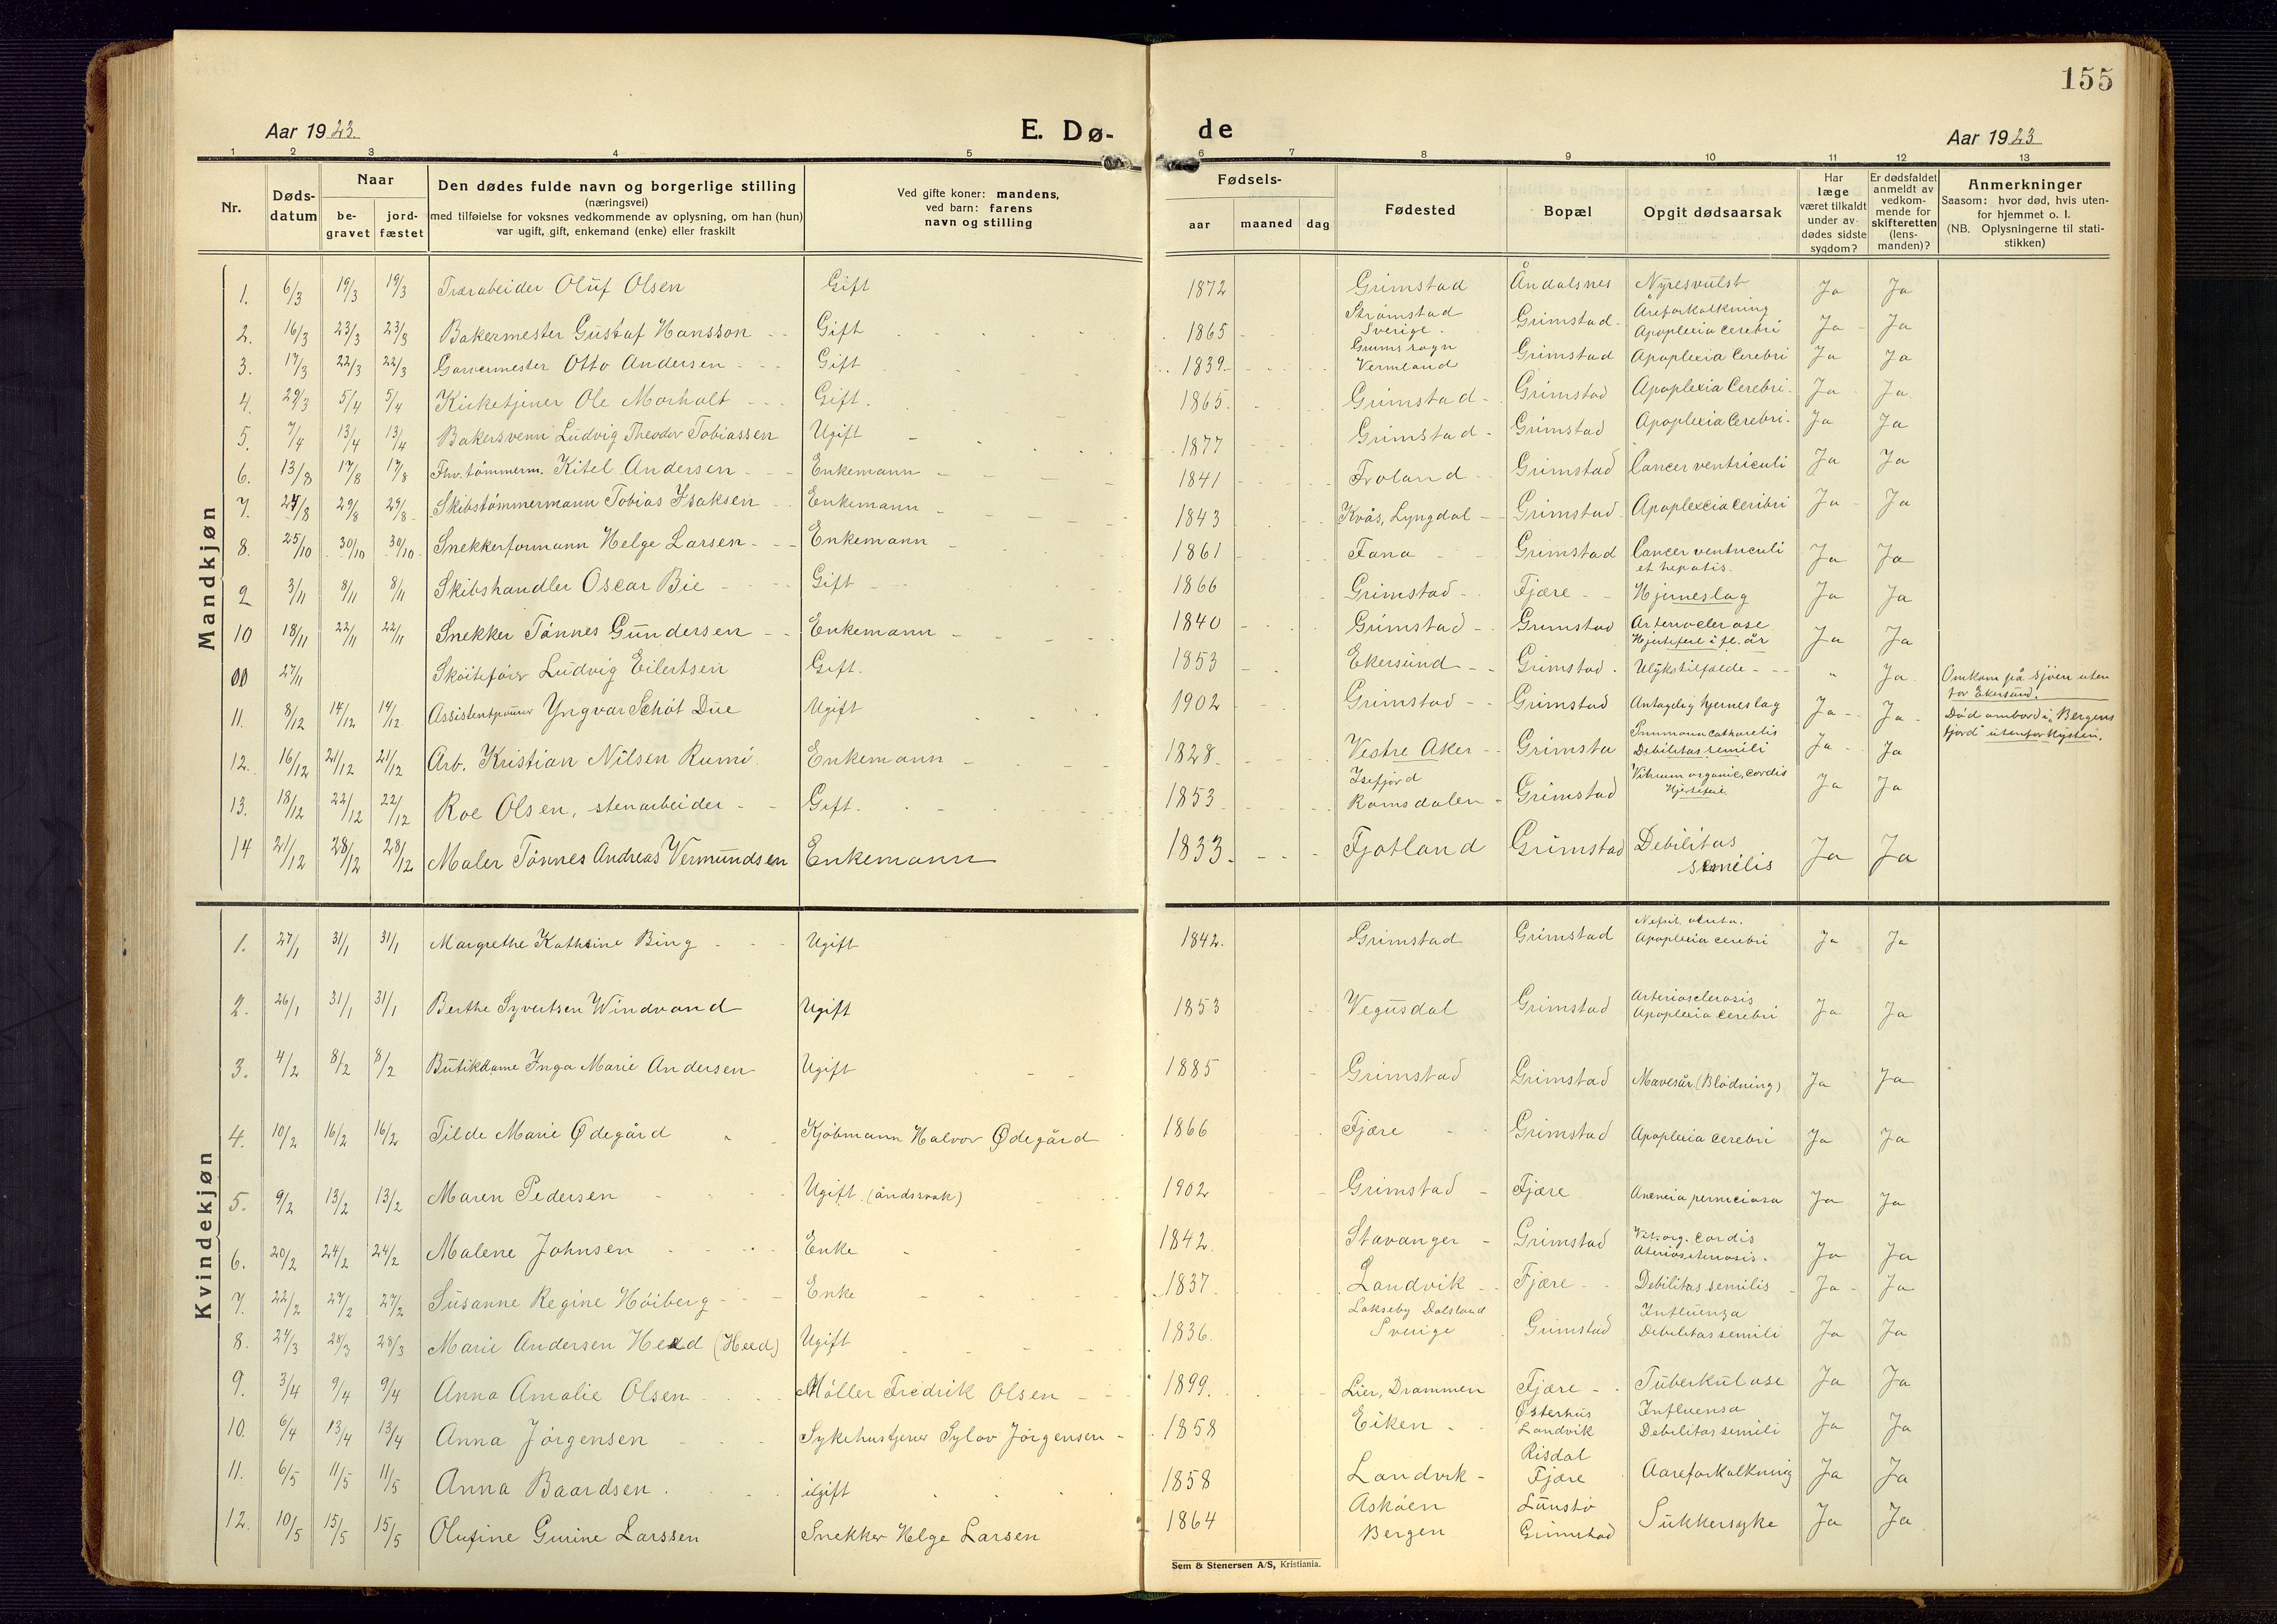 155
Aar 1923.
E. Dø-
de
Aar 1923
1 2 3 4 5 6 7 8 9 10 11 12 13
Nr.
Døds-
datum
Naar
be-
gravet
jord-
fæstet
Den dødes fulde navn og borgerlige stilling
(næringsvei)
med tilføielse for voksnes vedkommende av oplysning, om han (hun)
var ugift, gift, enkemand (enke) eller fraskilt
Ved gifte koner: mandens,
ved barn: farens
navn og stilling
Fødsels-
aar maaned dag
Fødested
Bopæl
Opgit dødsaarsak
Har
læge
været tilkaldt
under av-
dødes sidste
sygdom?
Er dødsfaldet
anmeldt av
vedkom-
mende for
skifteretten
(lens-
manden)?
Anmerkninger
Saasom: hvor død, hvis uten-
for hjemmet o. l.
(NB. Oplysningerne til stati-
stikken)
Mandkjøn
1. 6/3 19/3 19/3 Træarbeider Oluf Olsen Gift 1872 Grimstad Åndalsnes Nyresvulst Ja Ja
2. 16/3 23/3 23/3 Bakermester Gustaf Hansson Gift 1865 Strømstad Sverige. Grimstad. Åreforkalkning Apoplexia cerebri Ja Ja
3. 17/3 22/3 22/3 Garvermester Otto Andersen Gift 1839 Grums sogn Vermland Grimstad Apoplexia Cerebri Ja Ja
4. 29/3 5/4 5/4 Kirketjener Ole Morholt Gift. 1865. Grimstad Grimstad Apoplexia Cerebri. Ja Ja
5. 7/4 13/4 13/4 Bakersvenn Ludvig Theodor Tobiassen Ugift 1877 Grimstad Grimstad Apoplexia Cerebri. Ja Ja
6. 13/8 17/8 17/8 Fhv. tømmerm. Kitel Andersen Enkemann 1841 Froland Grimstad Cancer ventriculi Ja Ja
7. 24/8 29/8 29/8 Skibstømmermann Tobias Isaksen Enkemann 1843 Kvås, Lyngdal Grimstad Apoplexcia ceribri Ja Ja
8. 25/10 30/10 30/10 Snekkerformann Helge Larsen Enkemann 1861 Fana Grimstad Cancer ventriculi et hepatis. Ja Ja
9 3/11 8/11 8/11 Skibshandler Oscar Bie Gift 1866 Grimstad Fjære Hjerneslag Ja Ja
10 18/11 22/11 22/11 Snekker Tønnes Gundersen Enkemann 1840 Grimstad Grimstad Arterioclerose Hjertefeil i fl. år Ja Ja
00 27/11 Skøitefører Ludvig Eilertsen Gift. 1853 Ekersund Grimstad. Ulykstilfælde " Ja Omkom på sjøen uten for Ekersund.
11. 8/12 14/12 14/12 Yngvar Schøt Due Ugift 1902 Grimstad Grimstad Antagelig hjerneslag Ja Ja Død ombord i "Bergens fjord" utenfor kysten.
12. 16/12 21/12 21/12 Arb. Kristian Nilsen Enkemann 1828 Vestre Aker Grimsta Debilitas semili Ja Ja
13. 18/12 22/12 22/12 Roe Olsen, stenarbeider Gift. 1853 Isefjord Ramsdalen Grimstad Vitium organic. cordis Hjertefeil Ja Ja
14 21/12 28/12 28/12 Maler Tønnes Andreas Vermundsen Enkemann 1833 Fjotland Grimstad Debilitas senilis Ja Ja
Kvindekjøn
1. 27/1 31/1 31/1 Margrethe Kathrine Bing Ugift 1842. Grimstad Grimstad Apoplexia cerebri Ja Ja
2. 26/1 31/1 31/1 Berthe Syvertsen Windvand Ugift 1853 Vegusdal Grimstad Arteriosclerosis Apoplexia cerebri Ja Ja
3. 4/2 8/2 8/2 Butikdame Inga Marie Andersen Ugift 1885 Grimstad Grimstad Mavesår (Blødning) Ja Ja
4. 10/2 16/2 16/2 Tilde Marie Ødegård Kjøbmann Halvor Ødegård 1866 Fjære Grimstad Apoplexia cerebri Ja Ja
5. 9/2 13/2 13/2 Maren Pedersen Ugift. (åndssvak) 1902 Grimstad Fjære Anemia perniciosa Ja Ja
6. 20/2 24/2 24/2 Malene Johnsen Enke 1842. Stavanger Grimstad Vit. org. cordis Ja Ja
7. 22/2 27/2 27/2 Susanne Regine Høiberg Enke 1837. Landvik Fjære Debilitas semilis Ja Ja
8. 24/3 28/3 28/3 Marie Andersen Hexd (Heed) Ugift 1836. Lakseby Dalsland Sverige Grimstad Influenza Debilitas semili Ja Ja
9. 3/4 9/4 9/4 Anna Amalie Olsen Møller Fredrik Olsen 1899. Lier, Drammen Fjære Tuberkulose Ja Ja
10. 6/4 13/4 13/4 Anna Jørgensen Sykehustjener Sylov Jørgensen 1858 Eiken Østerhus Landvik Influensa Debilitas semili Ja Ja
11. 6/5 11/5 11/5 Anna Baardsen. ugift 1858 Landvik Risdal Fjære Aareforkalkning Ja Ja
12. 10/5 15/5 15/5 Olufine Gurine Larssen Snekker Helge Larsen 1864 Askøen Bergen Grimstad Sukkersyke Ja Ja
Sem & Stenersen A/S, Kristiania.